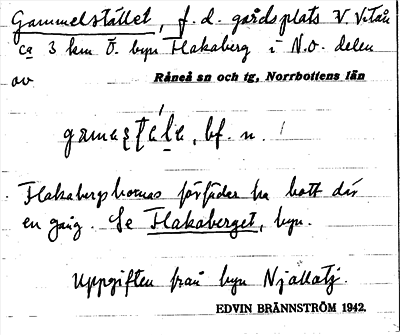 Gammelstället, f.d. gårdsplats V. Vitån
ca 3 km Ö. byn Flakaberg i N.O. delen
av Råneå sn och tg, Norrbottens län
bf. n.
Flakabergsbornas förfäder ha bott där
en gång. Se Flakaberget, byn.
Uppgiften från byn Njallatj.
EDVIN BRÄNNSTRÖM 1942.